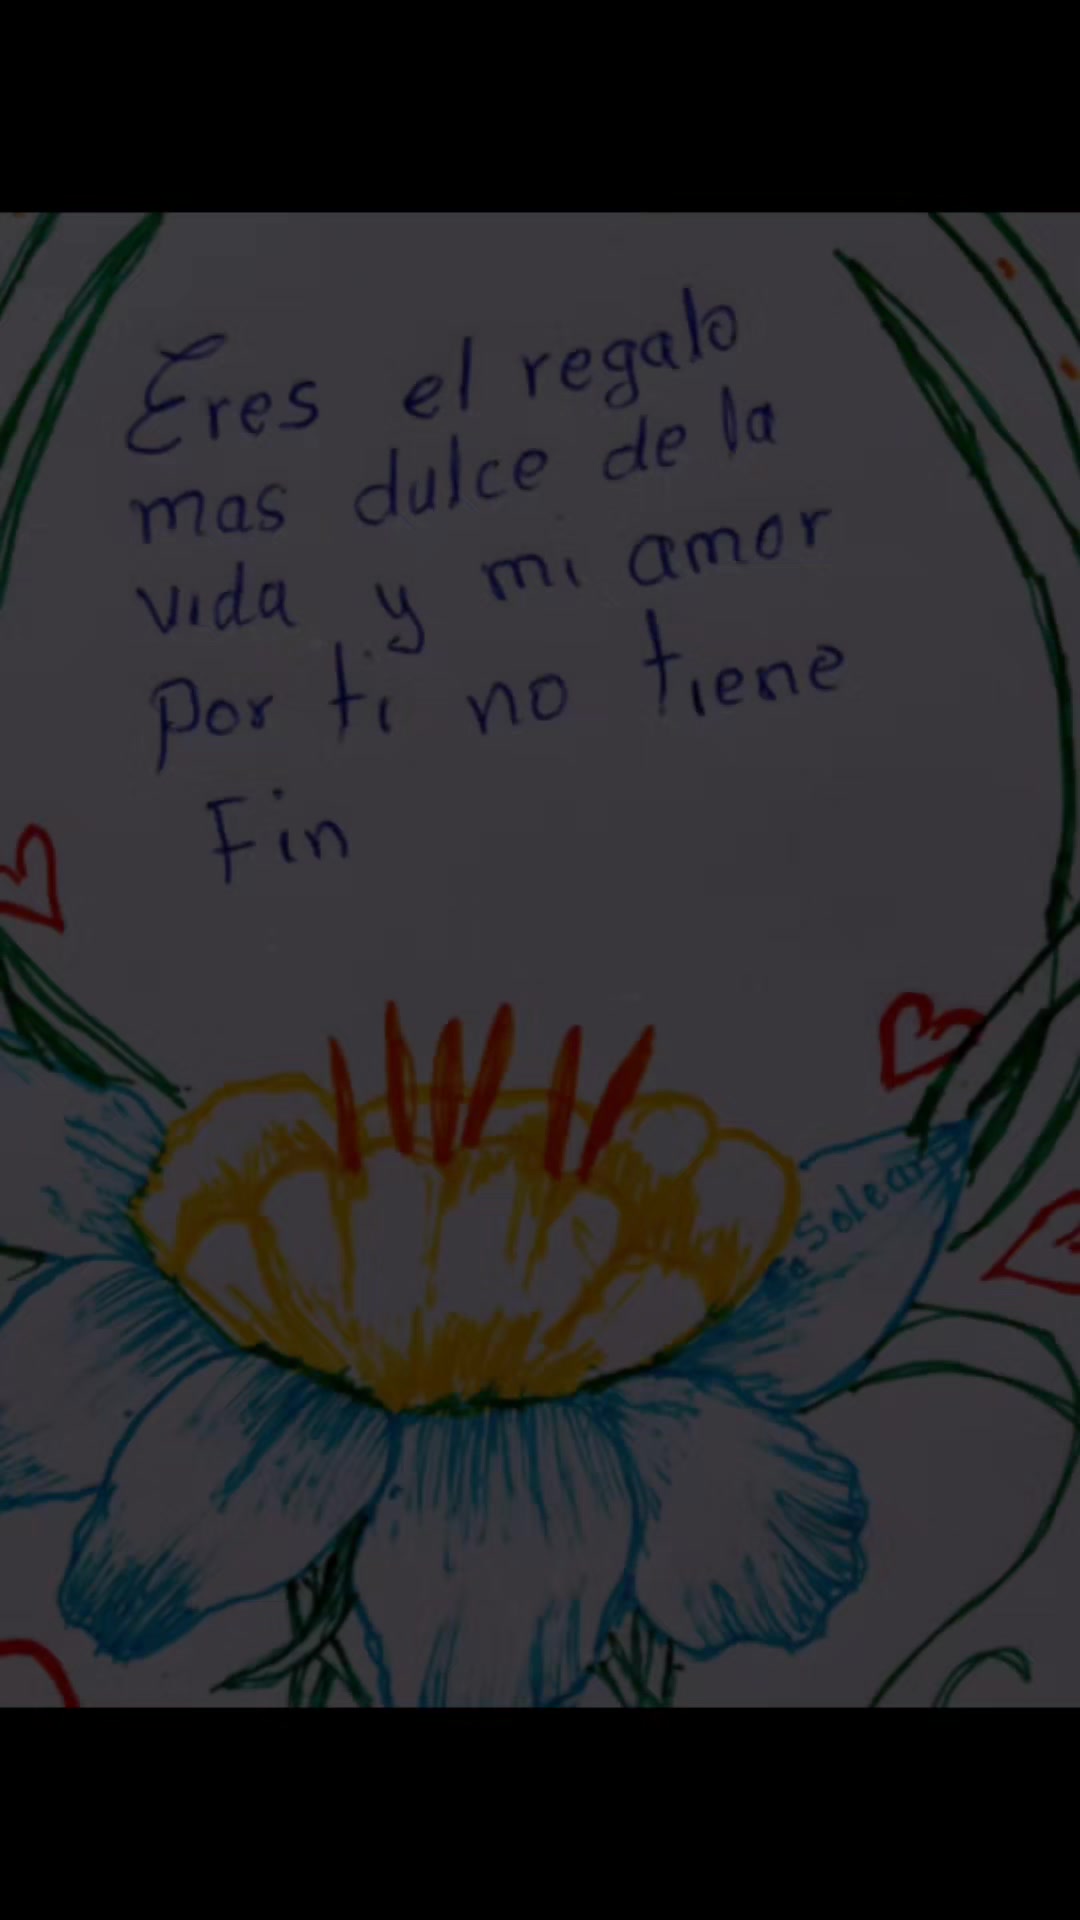 Eres el regalo
mas dulce de la
vida y mi amor
por ti no tiene
Fin